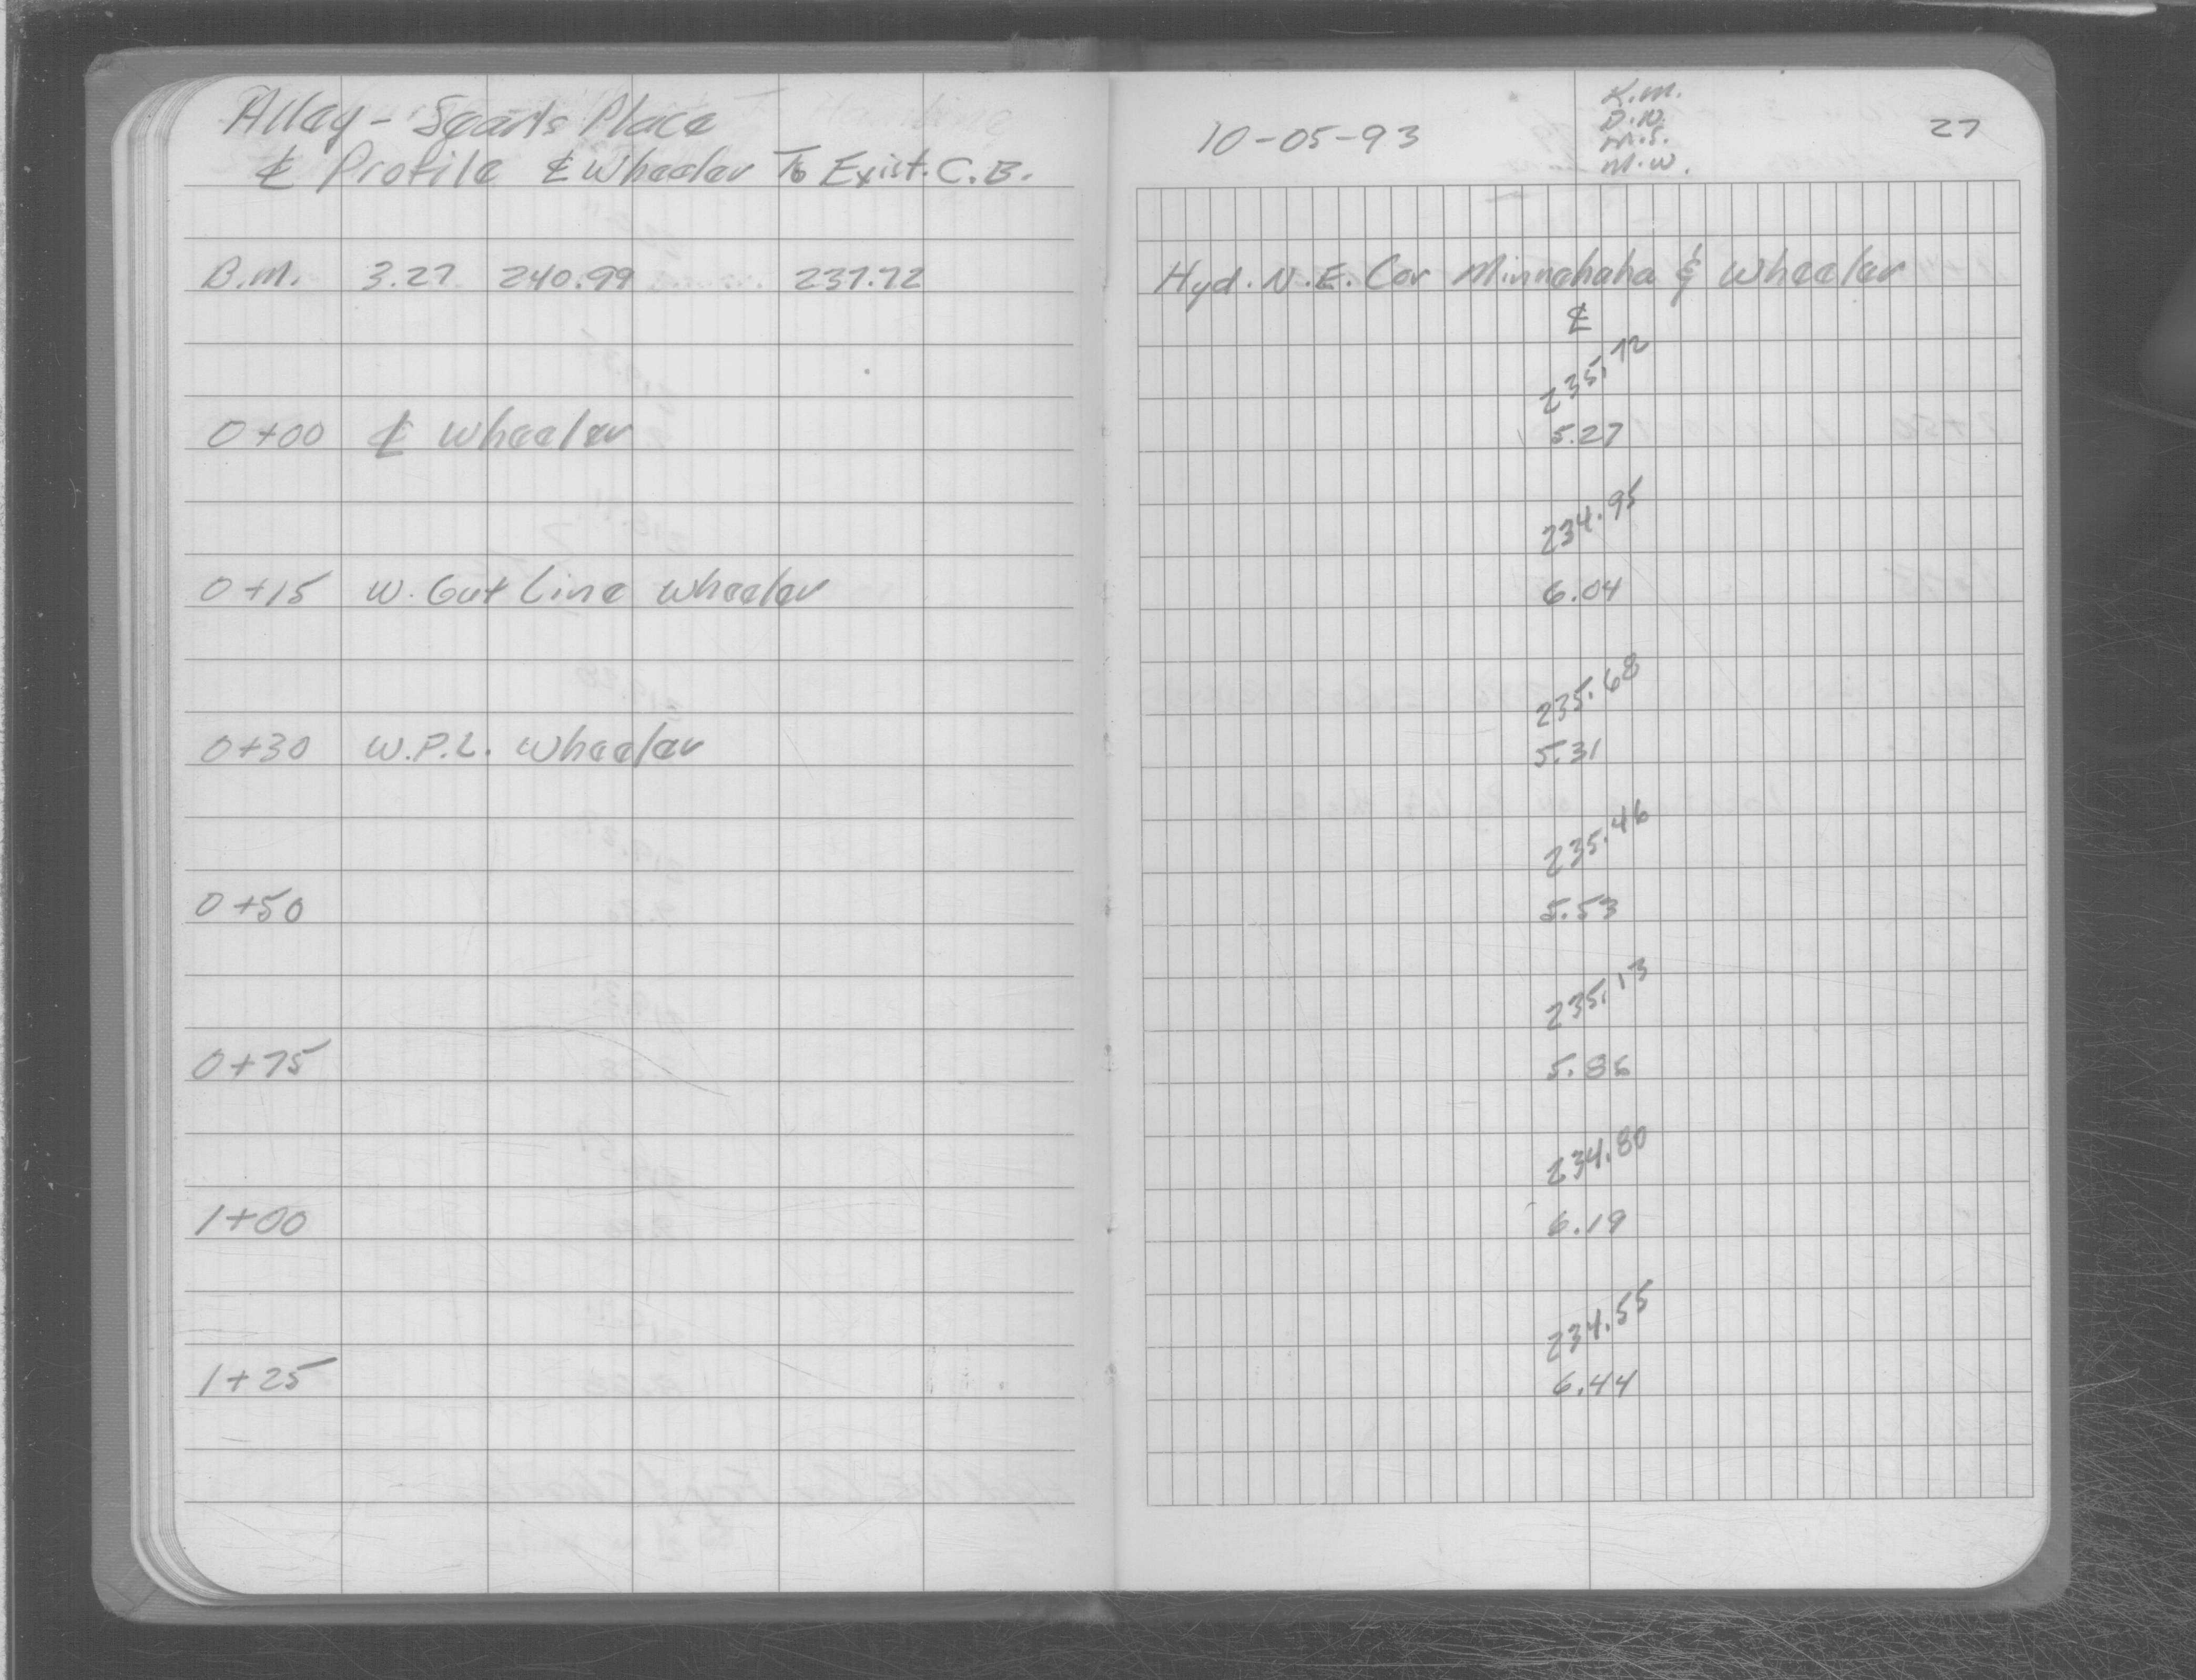 Alley - Spards Place
℄ Profile ℄ Wheeler To Exist. C.B.
B.M. 3.27 240.99 237.72
0+00 ℄ Wheeler
0+15 W. Gut Line Wheeler
0+30 W.P.L. Wheeler
0+50
0+75
1+00
1+25
10-05-93
K.M.
D.W.
M.S.
M.W.
27
Hyd. N.E. Cor Minnehaha & Wheeler
℄
235.72
5.27
234.95
6.04
235.68
5.31
235.46
5.53
235.13
5.86
234.80
6.19
234.55
6.44